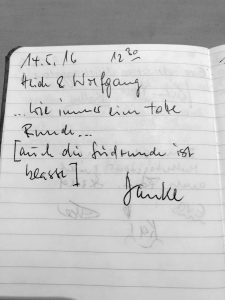 14.5.16 12³⁰
Heidi & Wolfgang
... wie immer eine tolle
Runde...
[auch die Südrunde ist
klasse]
Danke